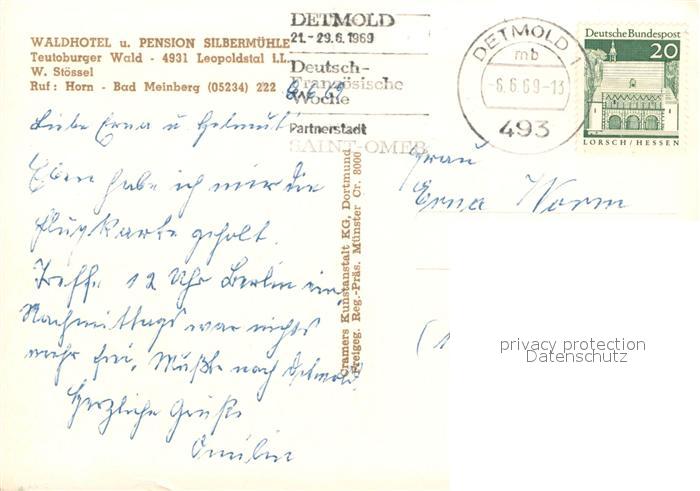 WALDHOTEL u. PENSION SILBERMÜHLE
Teutoburger Wald - 4931 Leopoldstal i.L.
W. Stössel
Ruf: Horn - Bad Meinberg (05234) 222
DETMOLD
21.-29.6.1969
Deutsch-
Französische
Woche
Partnerstadt
SAINT-OMER
DETMOLD 1
mb
-6.6.69-13
493
Deutsche Bundespost
20
LORSCH/HESSEN
Liebe Erna u. Helmut!
Eben habe ich mir die
Flugkarte geholt.
Treffe 12 Uhr Berlin ein,
Nachmittags war nichts
mehr frei. Mußte nach Detmold.
Herzliche Grüße
Cramers Kunstanstalt KG, Dortmund
Freigeg. Reg.-Präs. Münster Cr. 8000
Frau
Erna Worm
(1
privacy protection
Datenschutz